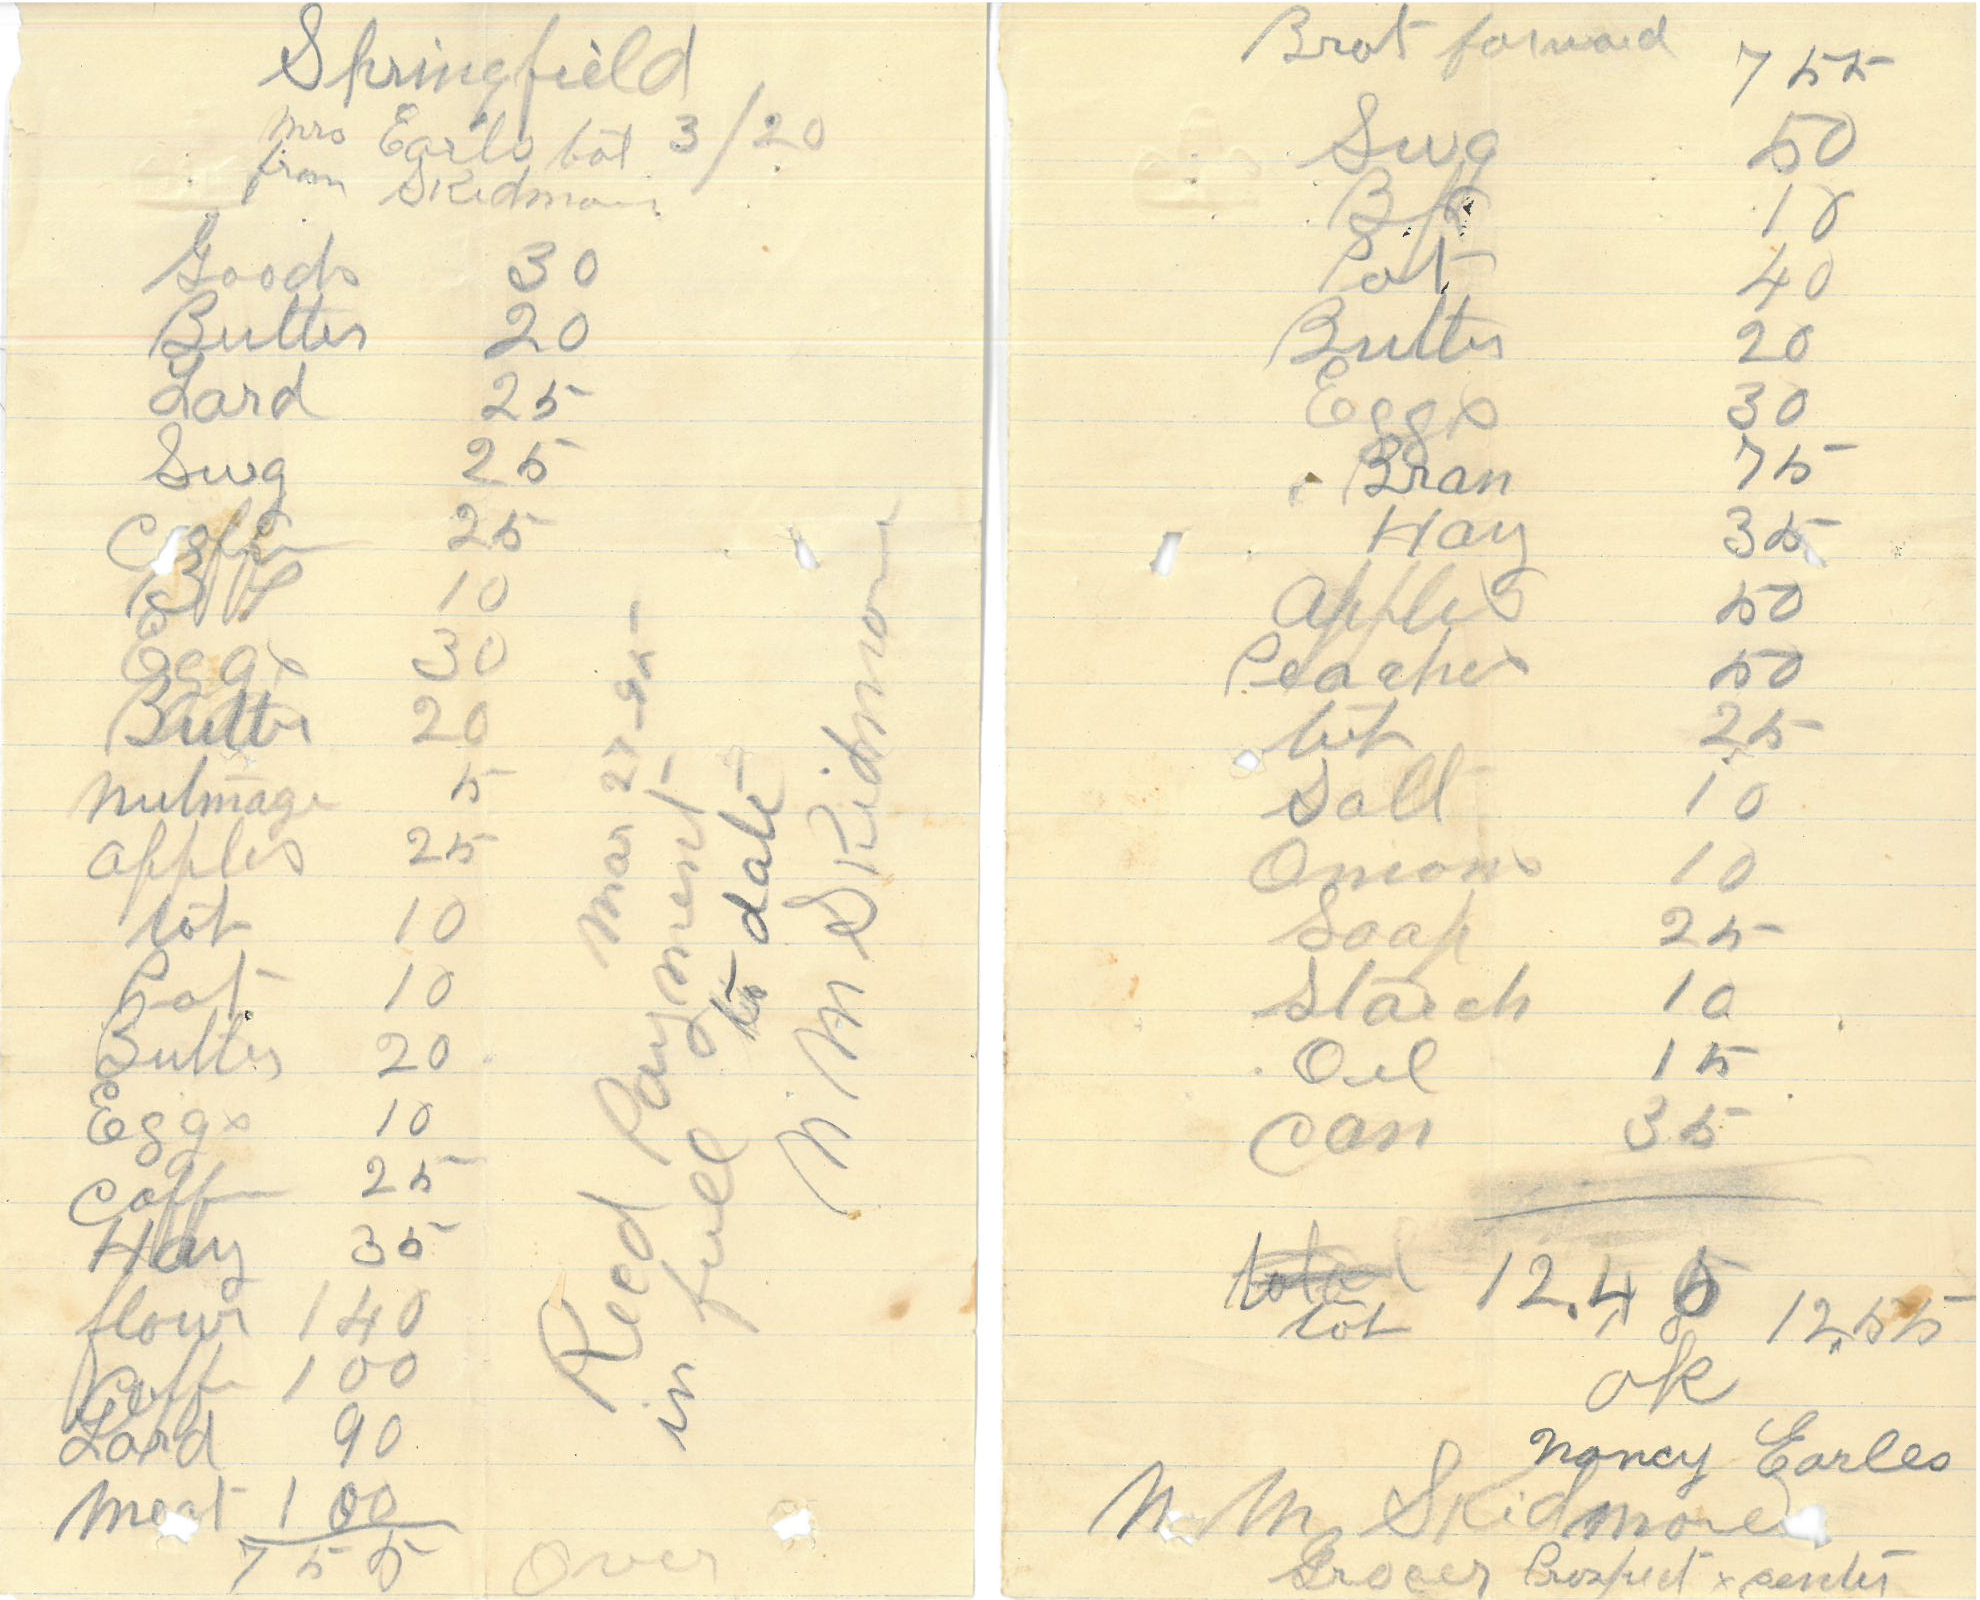 Springfield
Mrs Earls bot 3/20
from Skidmore
Goods 30
Butter 20
Lard 25
Sug 25
Coffe 25
B P 10
Eggs 30
Butter 20
nutmage 5
apples 25
tot 10
Pot 10
Butter 20
Eggs 10
Coff 25
Hay 35
flour 1 40
Coff 1 00
Lard 90
Meat 1 00
7 55
Over
Mar 27-95-
Recd Payment
in full to date
N M Skidmore
Brot forward 7 55
Sug 50
B P 10
Pot 40
Butter 20
Eggs 30
Bran 75
Hay 35
apples 50
Peaches 50
tot 25
Salt 10
Onions 10
Soap 25
Starch 10
Oil 15
Can 35
total 12.45
tot 12.55
ok
Nancy Earles
N. M. Skidmore
Grocer Prospect x center